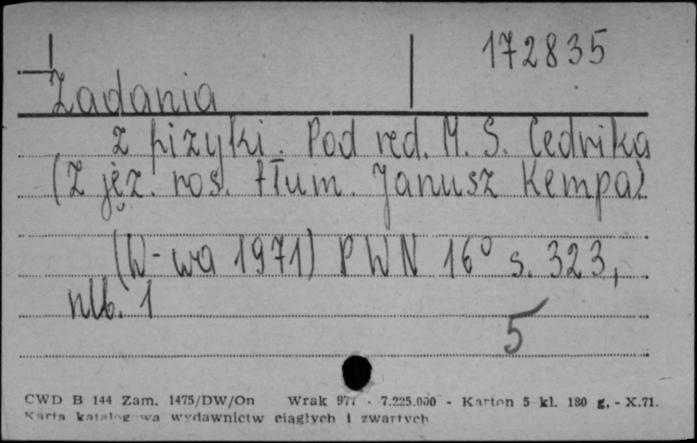 172835
Zadania
z fizyki. Pod red. M. S. Cedrika
(Z jęz. ros. tłum. Janusz Kempa)
(W-wa 1971) PWN 16° s. 323,
nlb. 1
5
CWD B 144 Zam. 1475/DW/On Wrak 977 - 7.225.000 - Karton 5 kl. 180 g. - X.71.
Karta katalogowa wydawnictw ciągłych i zwartych